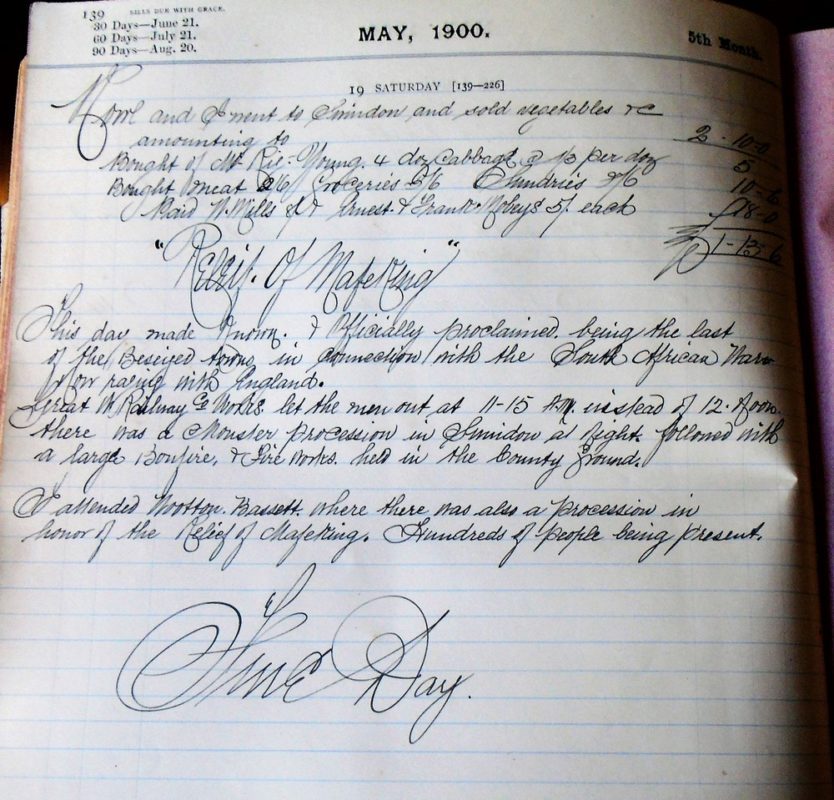 139 BILLS DUE WITH GRACE.
30 Days—June 21.
60 Days—July 21.
90 Days—Aug. 20.
MAY, 1900.
5th Month.
19 SATURDAY [139—226]
and I went to Swindon and sold vegetables &c
amounting to 2-10-0
Bought of Mr Young 4 doz Cabbage @ 1/3 per doz 5
Bought meat Groceries Sundries 10-6
Paid W. Mills & Ernest & Frank 5/ each 18-0
1-13-6
"Relief. Of Mafeking"
This day made Known. & Officially proclaimed. being the last
of the Beseyed towns in connection with the South African Warr
Now raging with England.
Great W. Railway Co Works let the men out at 11-15 A.M. instead of 12. Noon.
there was a Monster procession in Swindon at Night. followed with
a large Bonfire, & Fire works. held in the County Ground.
I attended Wootton. Bassett. where there was also a procession in
honor of the Relief of Mafeking. Hundreds of people being present.
Fine Day.